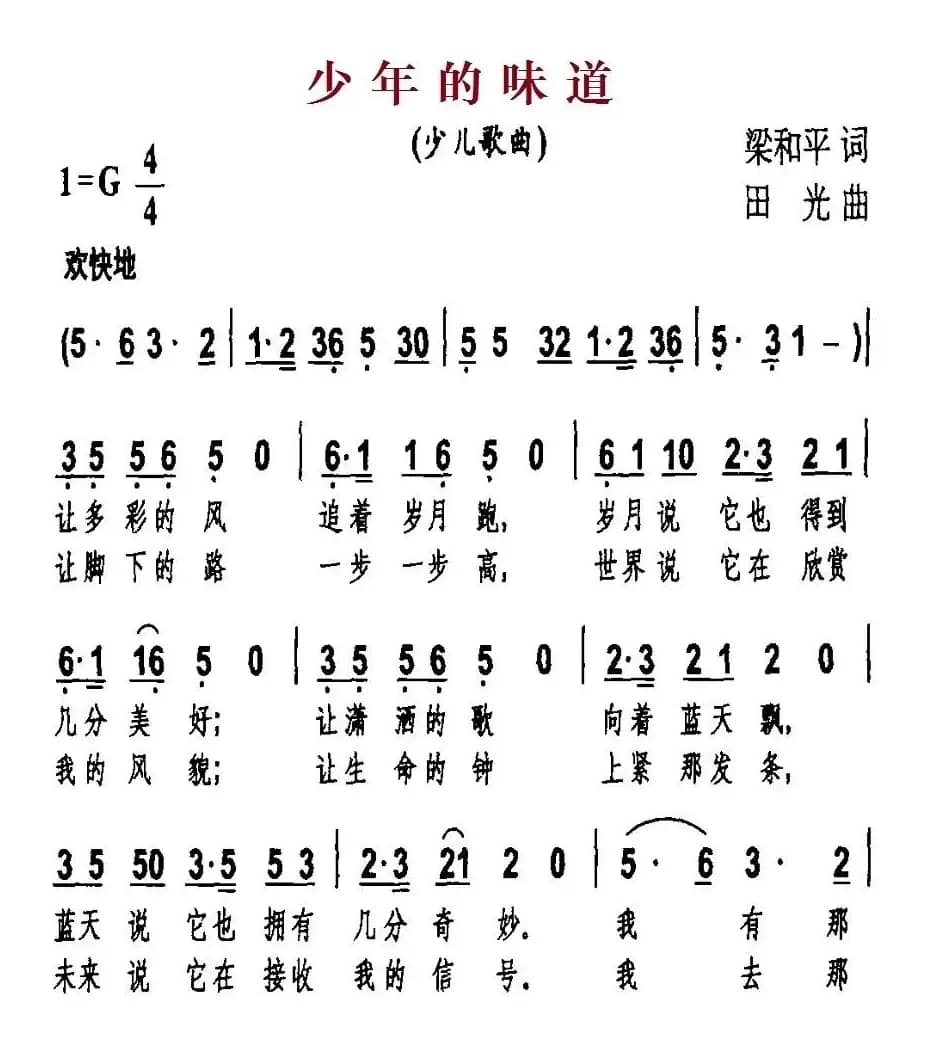 少年的味道
(少儿歌曲)
梁和平 词
1=G 4/4
田 光 曲
欢快地
(5· 6 3· 2 | 1·2 36 5 30 | 5 5 32 1·2 36 | 5· 3 1 – )|
3 5 5 6 5 0 | 6·1 1 6 5 0 | 6 1 10 2·3 2 1 |
让多 彩的 风 追着 岁月 跑, 岁月 说 它也 得到
让脚 下的 路 一步 一步 高, 世界 说 它在 欣赏
6·1 16 5 0 | 3 5 5 6 5 0 | 2·3 2 1 2 0 |
几分 美 好; 让潇 洒的 歌 向着 蓝天 飘,
我的 风 貌; 让生 命的 钟 上紧 那发 条,
3 5 50 3·5 5 3 | 2·3 21 2 0 | 5· 6 3· 2 |
蓝天 说 它也 拥有 几分 奇 妙. 我 有 那
未来 说 它在 接收 我的 信 号. 我 去 那